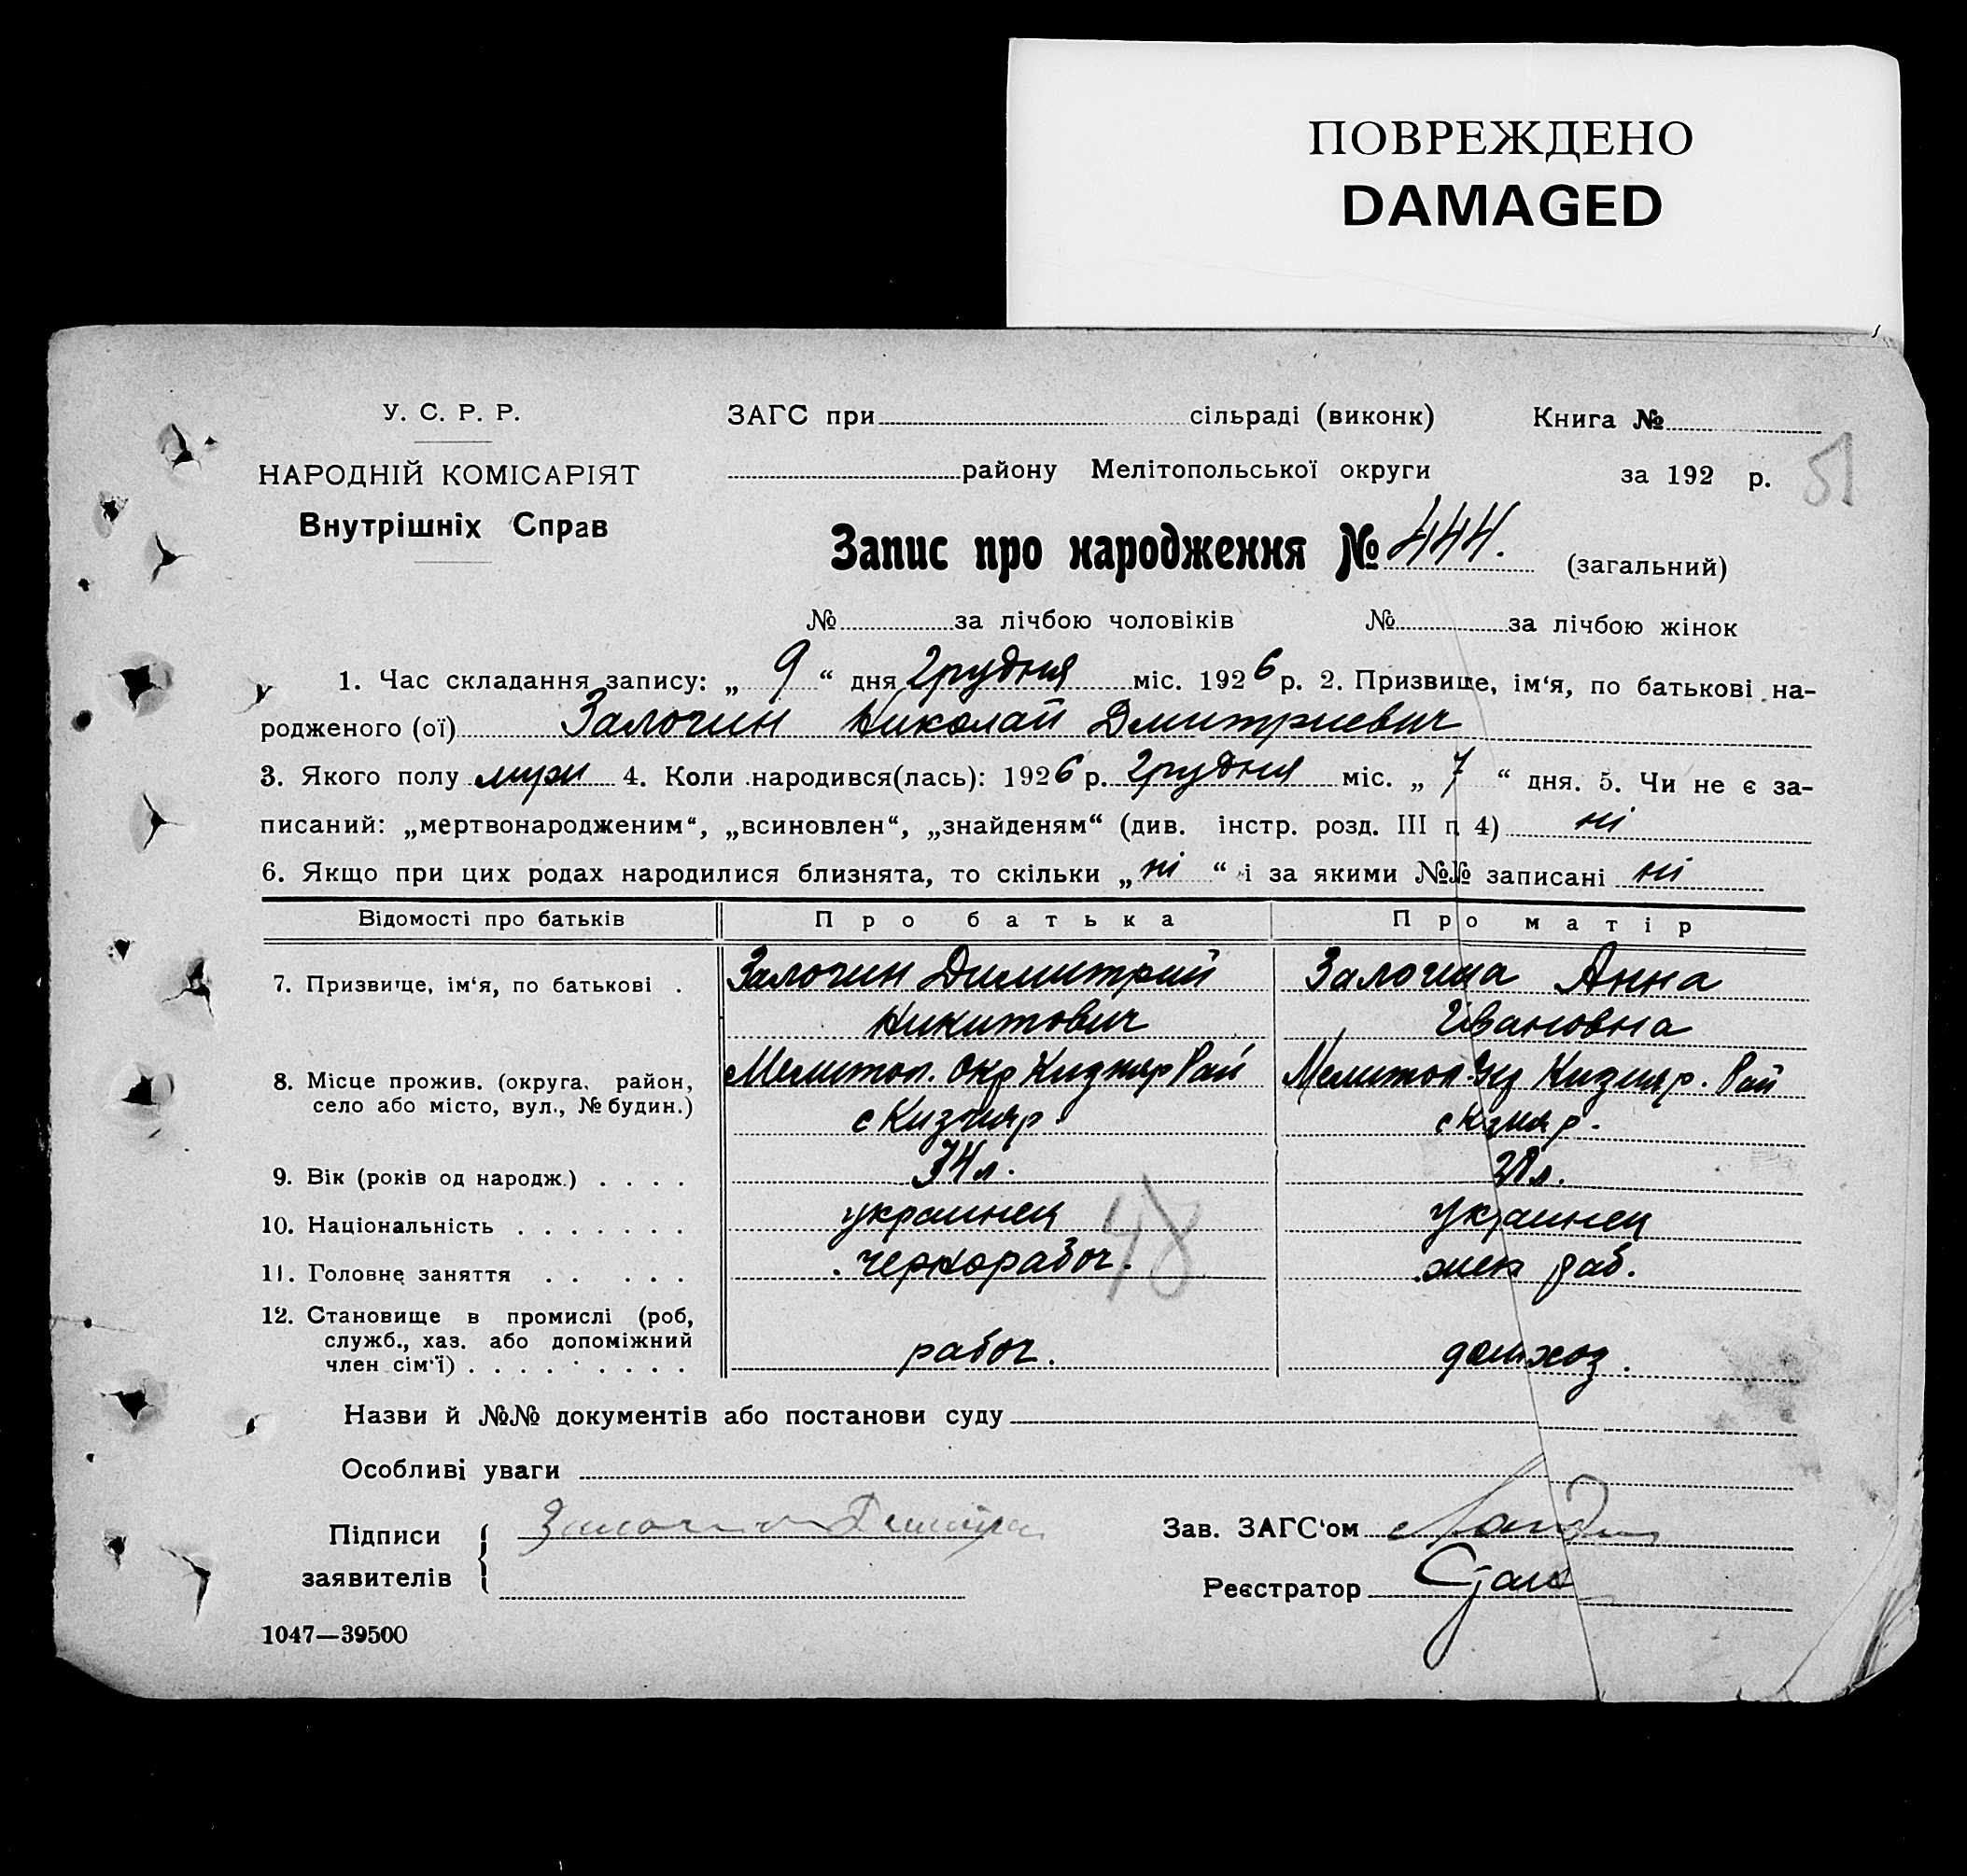 ПОВРЕЖДЕНО
DAMAGED
У. С. Р. Р.
НАРОДНІЙ КОМІСАРІЯТ
Внутрішніх Справ
ЗАГС при сільраді (виконк)
району Мелітопольської округи
Книга №
за 192 р.
51
Запис про народження № 444. (загальний)
№ за лічбою чоловіків № за лічбою жінок
1. Час складання запису: „ 9 “ дня грудня міс. 1926 р. 2. Призвище, ім‘я, по батькові на-
родженого (ої) Залогин Николай Дмитриевич
3. Якого полу муж 4. Коли народився(лась): 1926 р. грудня міс. „ 7 “ дня. 5. Чи не є за-
писаний: „мертвонародженим“, „всиновлен“, „знайденям“ (див. інстр. розд. III п 4) ні
6. Якщо при цих родах народилися близнята, то скільки „ ні “ і за якими №№ записані ні
Відомості про батьків Про батька Про матір
7. Призвище, ім‘я, по батькові . Залогин Димитрий Залогина Анна
Никитович Ивановна
8. Місце прожив. (округа, район, Мелитоп. Окр Кизияр Рай Мелитоп Окр Кизияр. Рай
село або місто, вул., № будин.) с Кизияр. с Кзияр.
9. Вік (років од народж.) . . . . 34 л. 28 л.
10. Національність . . . . . . . украинец украинец
11. Головне заняття . . . . . чернорабоч. жен раб.
48
12. Становище в промислі (роб,
служб., хаз. або допоміжний рабоч. домхоз.
член сім‘ї) . . . . . . . . .
Назви й №№ документів або постанови суду
Особливі уваги
Підписи
заявителів
Зав. ЗАГС‘ом
Реєстратор
1047—39500